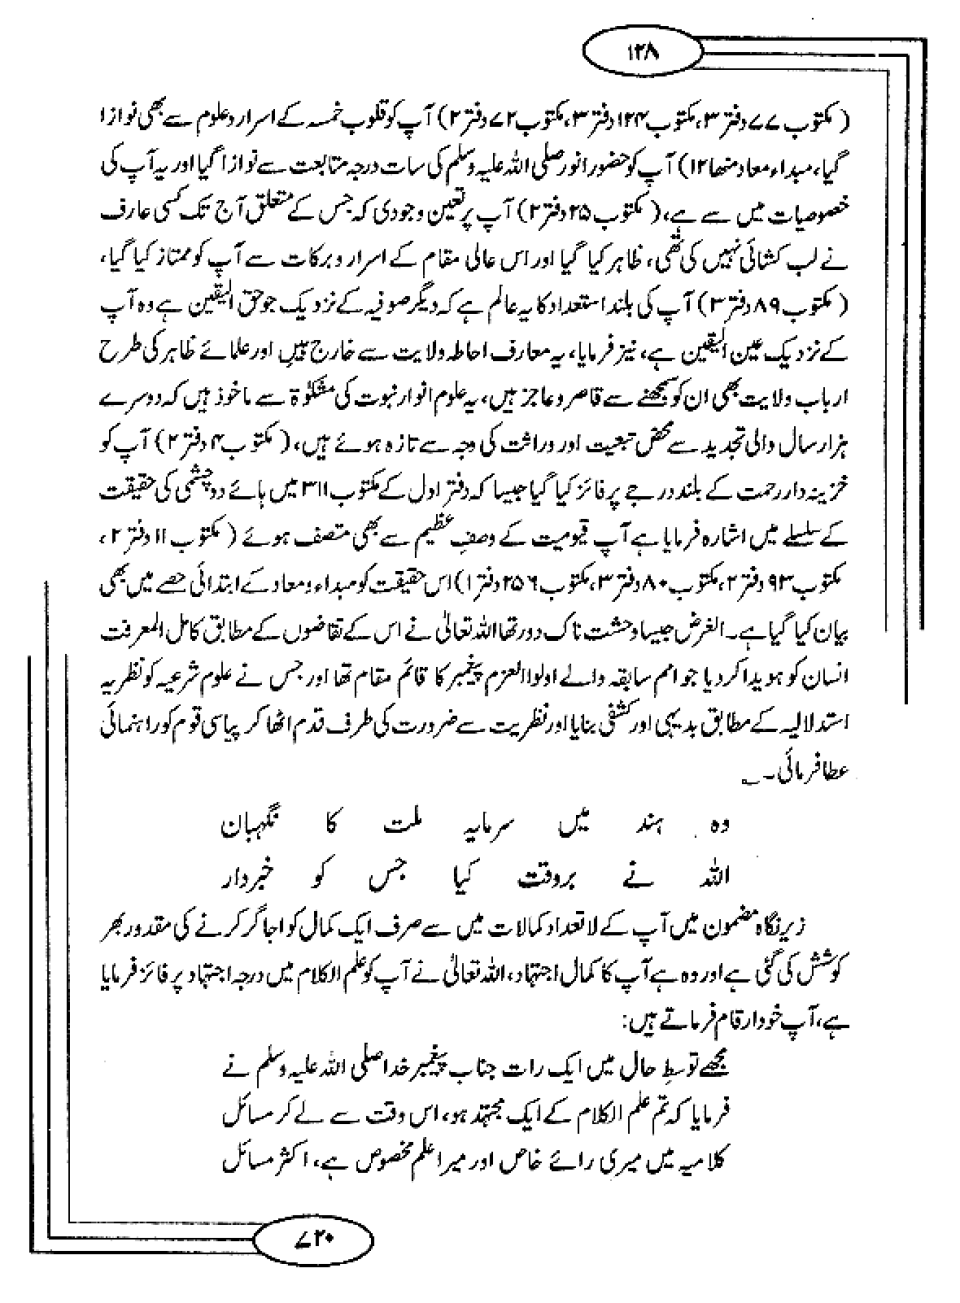 ۱۲۸
(مکتوب ۷۷ دفتر ۳، مکتوب ۱۲۴ دفتر ۳، مکتوب ۷۲ دفتر ۲) آپ کو قلوب خمسہ کے اسرار و علوم سے بھی نوازا
گیا، مبداء معاد منھا ۱۲) آپ کو حضور انور صلی اللہ علیہ وسلم کی سات درجہ متابعت سے نوازا گیا اور یہ آپ کی
خصوصیات میں سے ہے، (مکتوب ۲۵ دفتر ۲) آپ پر تعین وجودی کہ جس کے متعلق آج تک کسی عارف
نے لب کشائی نہیں کی تھی، ظاہر کیا گیا اور اس عالی مقام کے اسرار و برکات سے آپ کو ممتاز کیا گیا،
(مکتوب ۸۹ دفتر ۳) آپ کی بلند استعداد کا یہ عالم ہے کہ دیگر صوفیہ کے نزدیک جو حق الیقین ہے وہ آپ
کے نزدیک عین الیقین ہے، نیز فرمایا، یہ معارف احاطہ ولایت سے خارج ہیں اور علمائے ظاہر کی طرح
ارباب ولایت بھی ان کو سمجھنے سے قاصر و عاجز ہیں، یہ علوم انوار نبوت کی مشکوٰۃ سے ماخوذ ہیں کہ دوسرے
ہزار سال والی تجدید سے محض تبعیت اور وراثت کی وجہ سے تازہ ہوئے ہیں، (مکتوب ۴ دفتر ۲) آپ کو
خزینہ دار رحمت کے بلند درجے پر فائز کیا گیا جیسا کہ دفتر اول کے مکتوب ۳۱۱ میں ہائے دو چشمی کی حقیقت
کے سلسلے میں اشارہ فرمایا ہے آپ قیومیت کے وصفِ عظیم سے بھی متصف ہوئے (مکتوب ۱۱ دفتر ۲،
مکتوب ۹۳ دفتر ۲، مکتوب ۸۰ دفتر ۳، مکتوب ۲۵۶ دفتر ۱) اس حقیقت کو مبداء و معاد کے ابتدائی حصے میں بھی
بیان کیا گیا ہے۔ الغرض جیسا وحشت ناک دور تھا اللہ تعالیٰ نے اس کے تقاضوں کے مطابق کامل المعرفت
انسان کو ہویدا کر دیا جو امم سابقہ والے اولوا العزم پیغمبر کا قائم مقام تھا اور جس نے علوم شرعیہ کو نظریہ
استدلالیہ کے مطابق بدیہی اور کشفی بنایا اور نظریت سے ضرورت کی طرف قدم اٹھا کر پیاسی قوم کو راہنمائی
عطا فرمائی۔؂
وہ ہند میں سرمایہ ملت کا نگہبان
اللہ نے بروقت کیا جس کو خبردار
زیر نگاہ مضمون میں آپ کے لاتعداد کمالات میں سے صرف ایک کمال کو اجاگر کرنے کی مقدور بھر
کوشش کی گئی ہے اور وہ ہے آپ کا کمال اجتہاد، اللہ تعالیٰ نے آپ کو علم الکلام میں درجہ اجتہاد پر فائز فرمایا
ہے، آپ خود ارقام فرماتے ہیں:
مجھے توسطِ حال میں ایک رات جناب پیغمبر خدا صلی اللہ علیہ وسلم نے
فرمایا کہ تم علم الکلام کے ایک مجتہد ہو، اس وقت سے لے کر مسائل
کلامیہ میں میری رائے خاص اور میرا علم مخصوص ہے، اکثر مسائل
۷۲۰